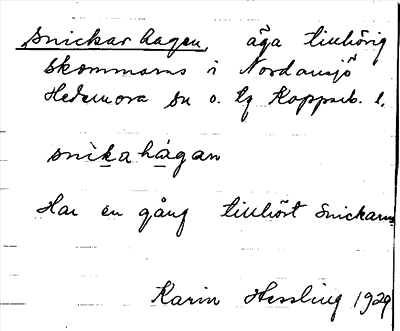 Snickarhagen, äga tillhörig
skommarns i Nordansjö
Hedemora sn o. tg Kopparb. l.
snikahágan
Har en gång tillhört Snickarns
Karin Hessling 1929